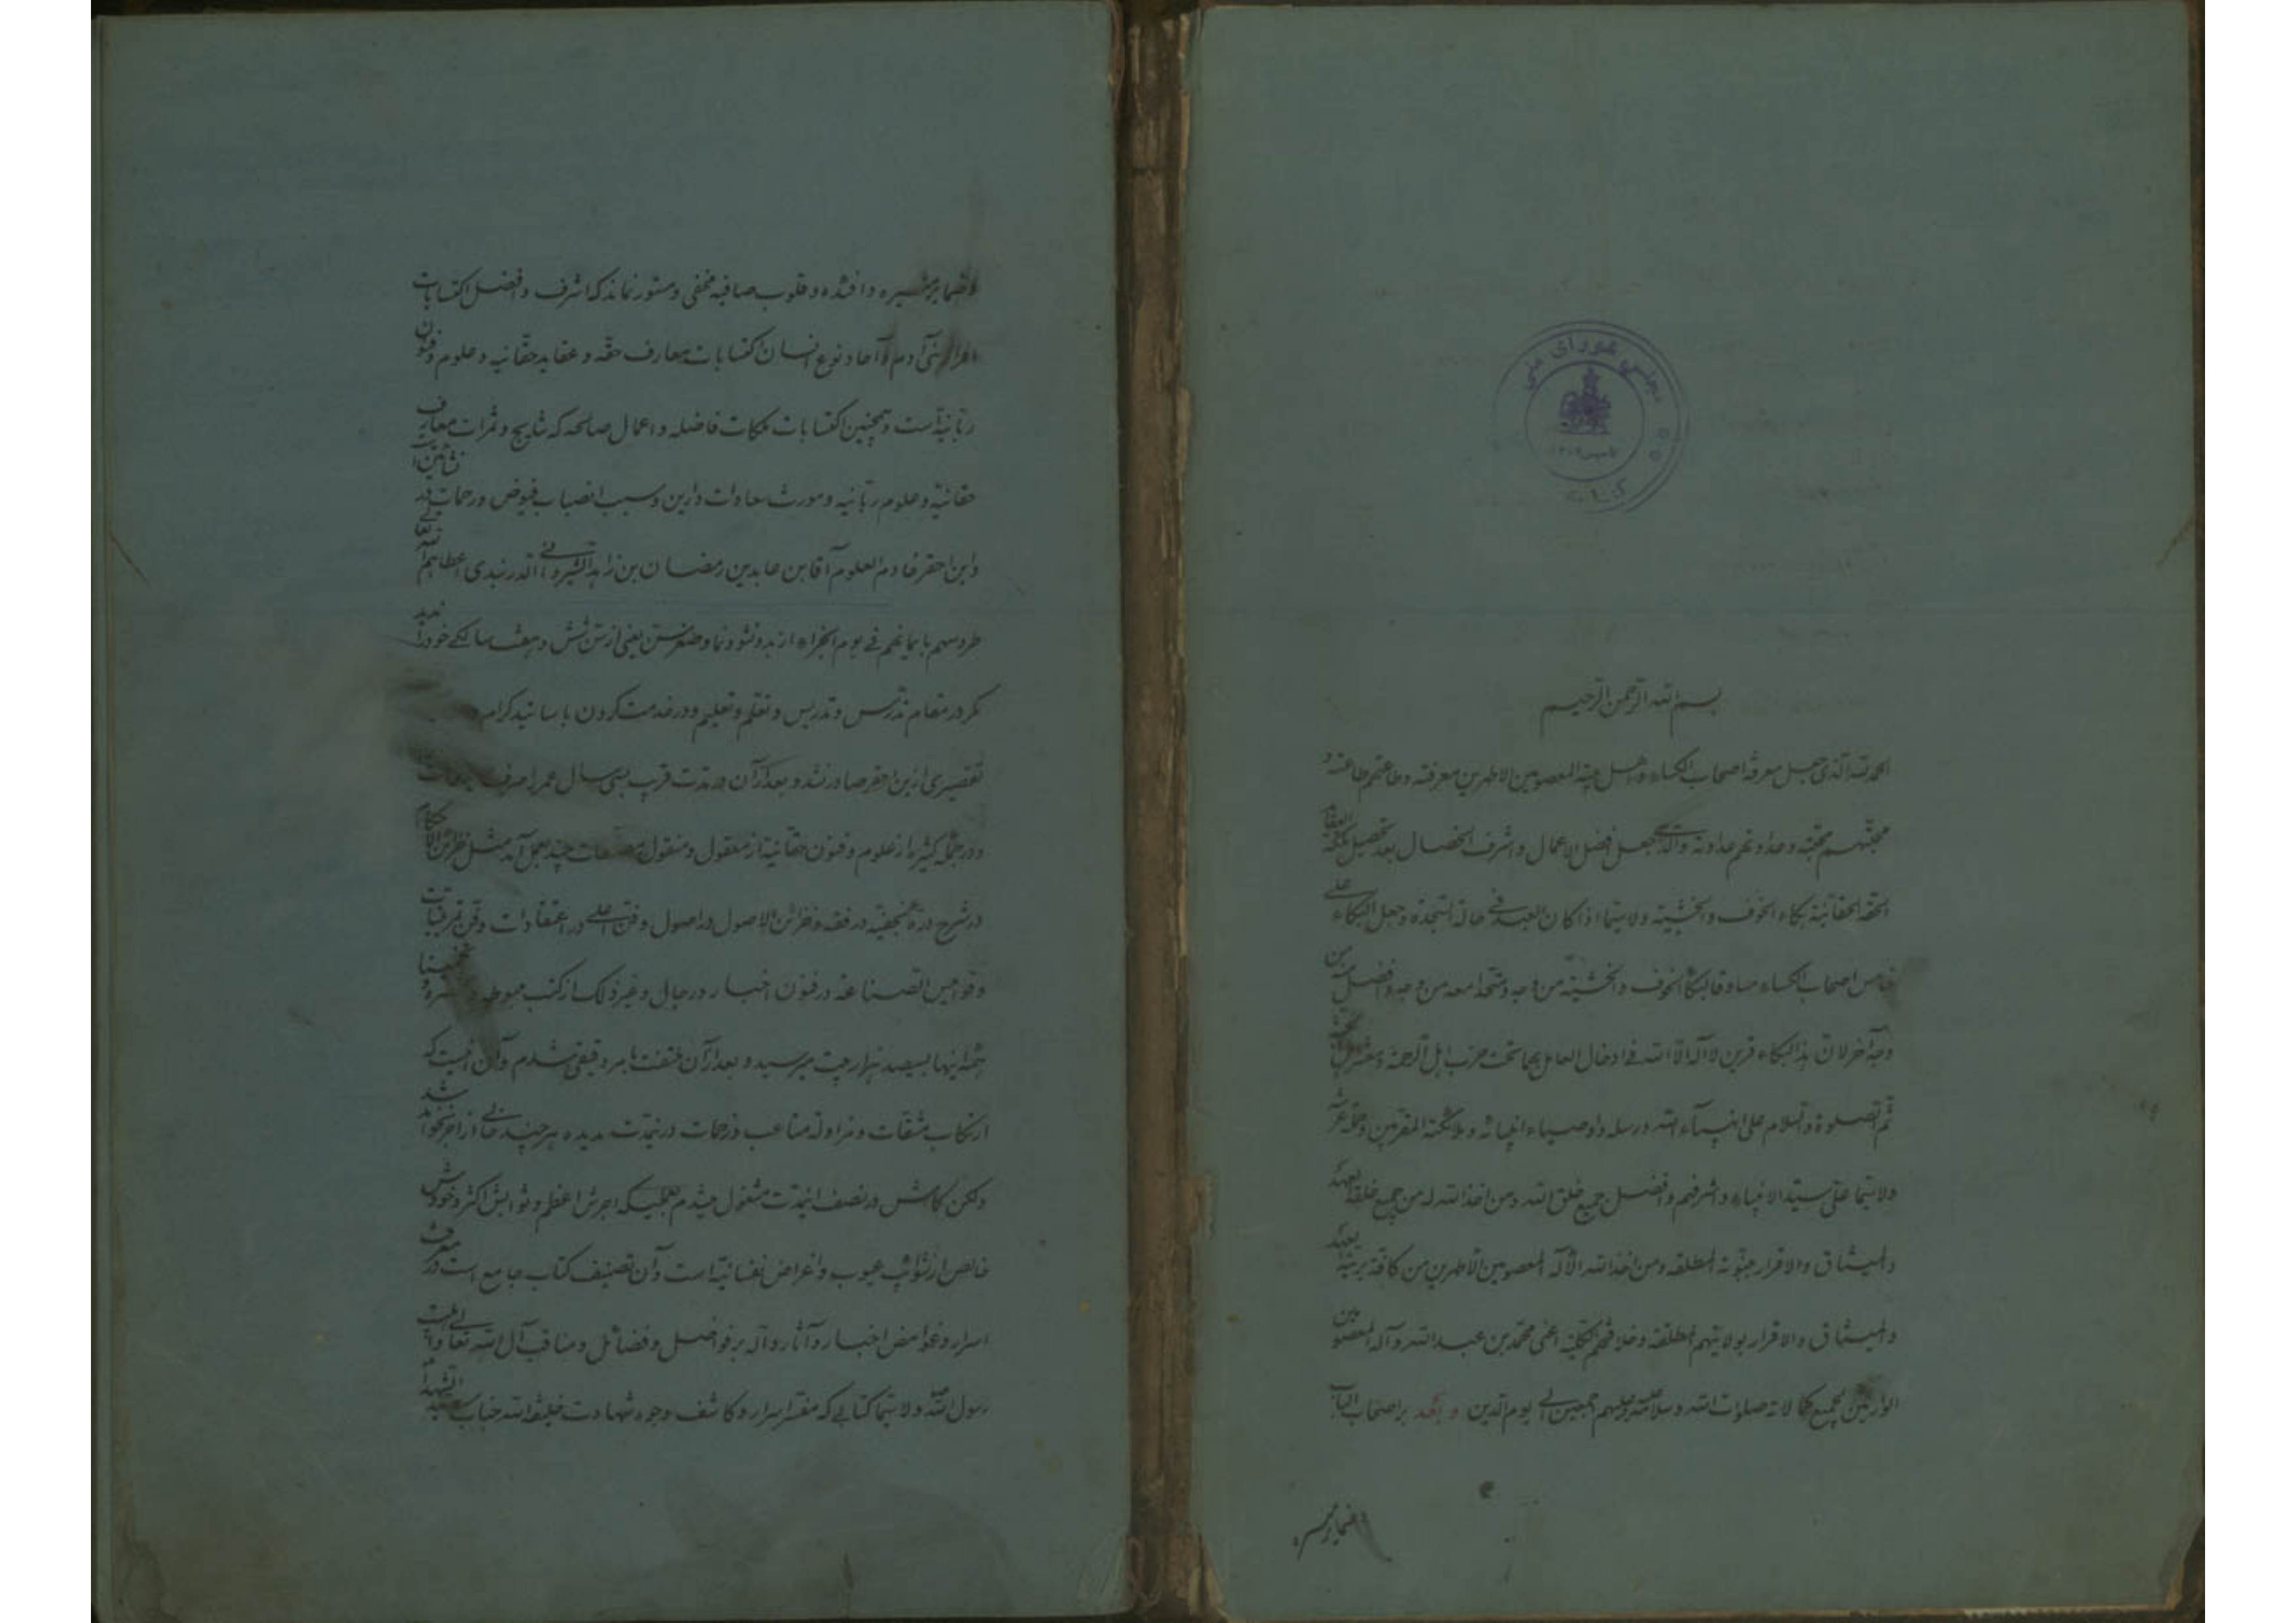 مجلس شورای ملی
تاسیس ۱۳۰۲
کتابخانه
بسم الله الرحمن الرحیم
الحمد لله الذی جعل معرفة اصحاب الکساء و اهل بیته المعصومین الاطهرین معرفته و طاعتهم طاعته و
محبتهم محبته و عداوتهم عداوته والذی جعل افضل الاعمال و اشرف الخصال بعد تحصیل ملکة العقاید
الحقة الحقانیة بکاء الخوف والخشیة ولاسیما اذا کان العبد فی حالة السجدة وجعل البکاء علی
خامس اصحاب الکساء مساوقا لبکاء الخوف والخشیة من وجه ومتحدا معه من وجه وافضل من
وجه آخر لان هذا البکاء قرین لا اله الا الله فی ادخال العامل بهما تحت حزب اهل الرحمة
ثم الصلوة والسلام علی انبیاء الله ورسله واوصیاء انبیائه وملائکته المقربین وحملة عرشه
ولاسیما علی سید الانبیاء واشرفهم وافضل جمیع خلق الله ومن اخذ الله له من جمیع خلقه العهد
والمیثاق والاقرار بنبوته المطلقه ومن اخذ الله لآله المعصومین الاطهرین من کافة بریته العهد
والمیثاق والاقرار بولایتهم المطلقة وخلافتهم الکلیة اعنی محمد بن عبدالله وآله المعصومین
الوارثین لجمیع کمالاته صلوات الله وسلامه علیه وعلیهم اجمعین الی یوم الدین و بعد بر اصحاب الباب
وافئده و قلوب صافیه مخفی و مستور نماند که اشرف و افضل اکتسابات
افراد بنی آدم و آحاد نوع انسان اکتسابات معارف حقه و عقاید حقانیه و علوم و فنون
ربانیة است و همچنین اکتسابات ملکات فاضله و اعمال صالحه که نتایج و ثمرات معارف
حقانیة و علوم ربانیه و مورث سعادات دارین و سبب انصباب فیوض و رحمات در نشأتین است
و این احقر خادم العلوم آقا بن عابدین رمضان بن زاهد الشیروانی الدربندی اعطاهم الله تعالی
طروسهم بایمانهم فی یوم الجزاء از بدو نشو و نما و صغر سن یعنی از سن شش و هفت سالگی خود را ندید
مگر در مقام تدرس و تدریس و تعلم و تعلیم و در خدمت کردن باساتید کرام
تقصیری ازین احقر صادر نشد و بعد از آن در مدت قرب بسی سال عمر را صرف
و در جملة کثیره از علوم و فنون حقانیة از معقول و منقول مصنفات چند بعمل آمد مثل خزائن الاحکام
در شرح درة نجفیة در فقه و خزائن الاصول در اصول و فن اعلی در اعتقادات و فن تمرینیات
و قوامیس الصناعة در فنون اخبار و رجال و غیر ذلک از کتب مبسوطه و
همه اینها بسیصد هزار بیت میرسید و بعد از آن ملتفت بامر دقیقی شدم و آن اینست که
ارتکاب مشقات و مزاوله متاعب و زحمات درینمدت مدیده هر چند خالی از اجر نخواهد شد
ولکن کاش در نصف اینمدت مشغول میشدم بعملیکه اجرش اعظم و ثوابش اکثر و خودش
خالص از شوائب عیوب و اغراض نفسانیة است و آن تصنیف کتاب جامع است در معرفت
اسرار و غوامض اخبار و آثار داله بر فواضل و فضائل و مناقب آل الله تعالی و اهل بیت
رسول الله ولاسیما کتابی که مفسر اسرار و کاشف وجوه شهادت خلیفة الله جناب سید الشهداء